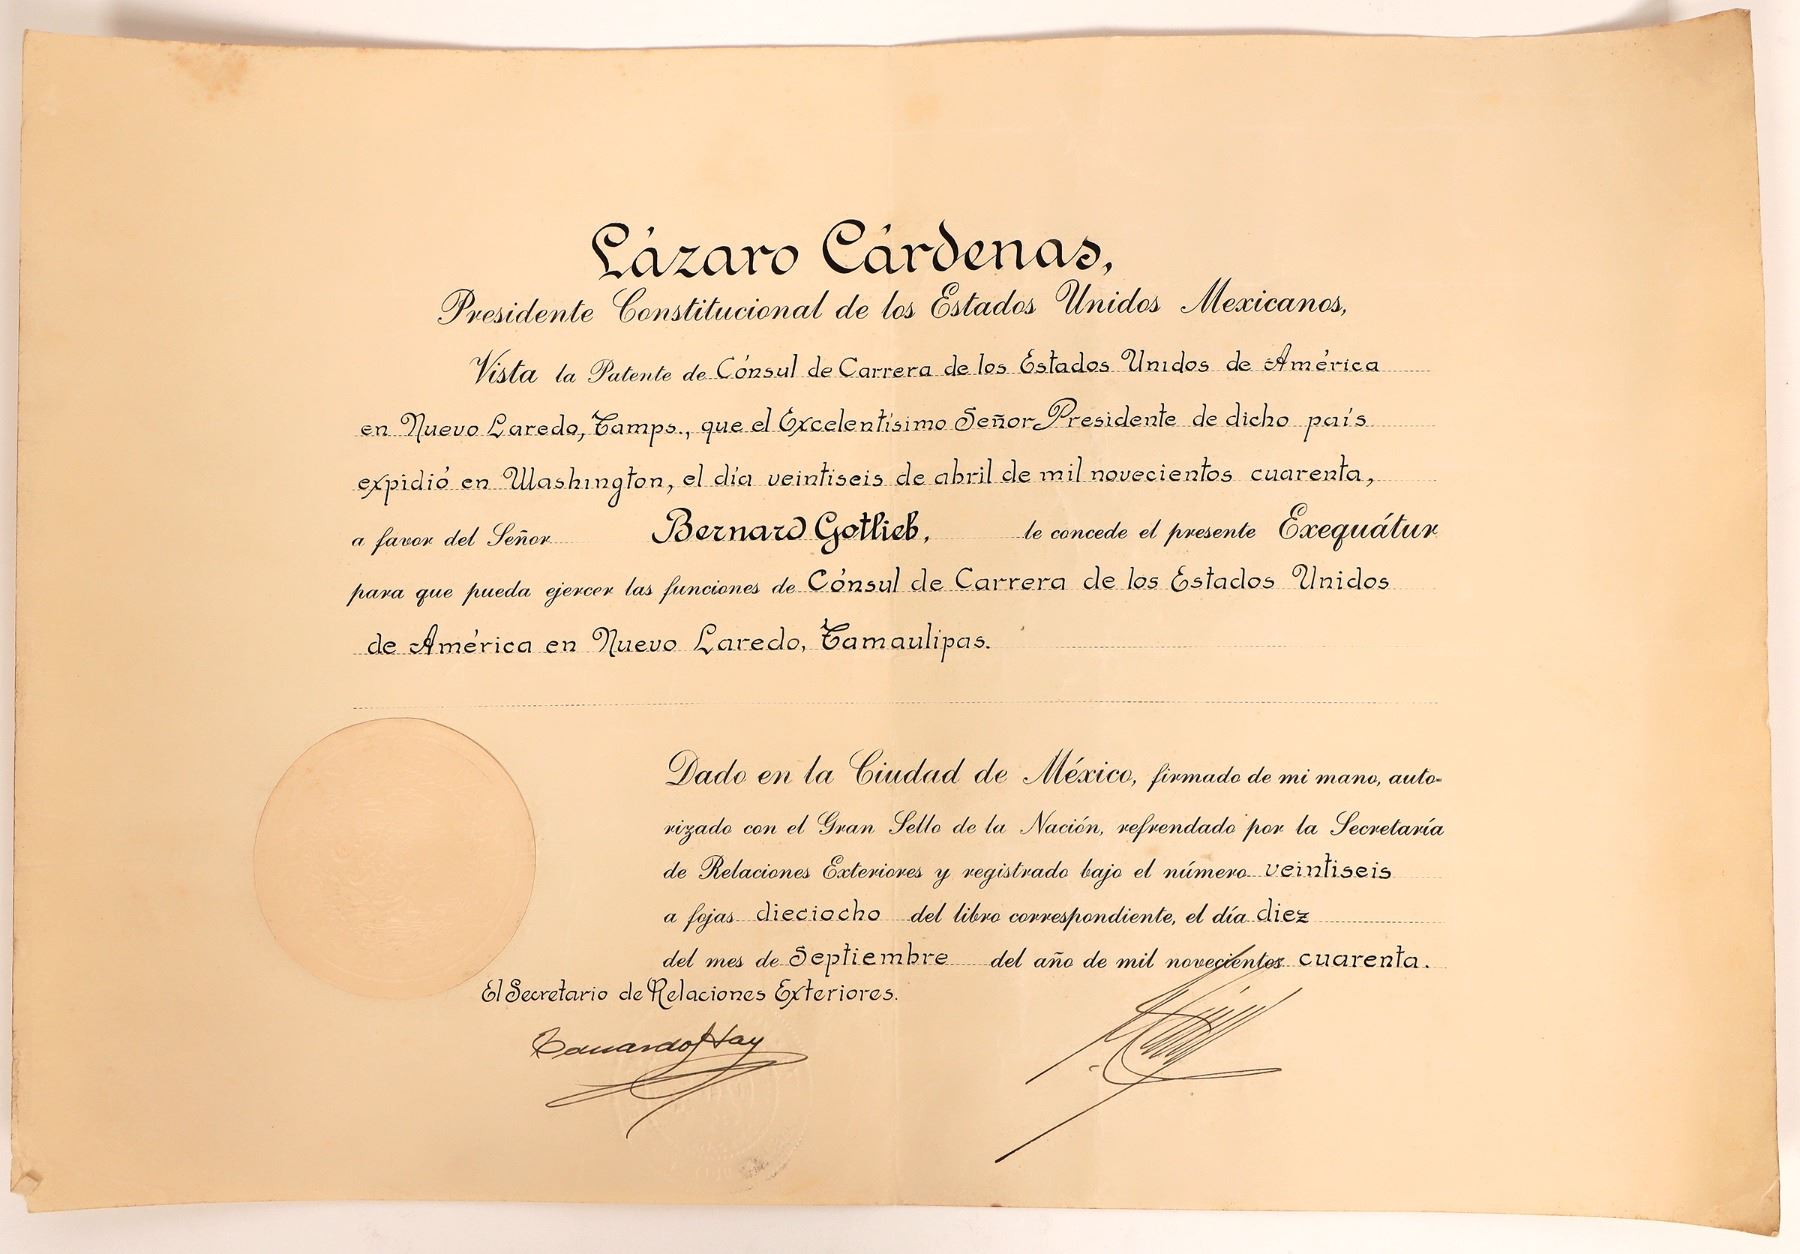 Lázaro Cárdenas,
Presidente Constitucional de los Estados Unidos Mexicanos,
Vista la Patente de Cónsul de Carrera de los Estados Unidos de América
en Nuevo Laredo, Tamps., que el Excelentísimo Señor Presidente de dicho país
expidió en Washington, el día veintiseis de abril de mil novecientos cuarenta,
a favor del Señor Bernard Gotlieb, le concede el presente Exequátur
para que pueda ejercer las funciones de Cónsul de Carrera de los Estados Unidos
de América en Nuevo Laredo, Tamaulipas.
Dado en la Ciudad de México, firmado de mi mano, auto-
rizado con el Gran Sello de la Nación, refrendado por la Secretaría
de Relaciones Exteriores y registrado bajo el número veintiseis
a fojas dieciocho del libro correspondiente, el día diez
del mes de Septiembre del año de mil novecientos cuarenta.
El Secretario de Relaciones Exteriores.
Eduardo Hay